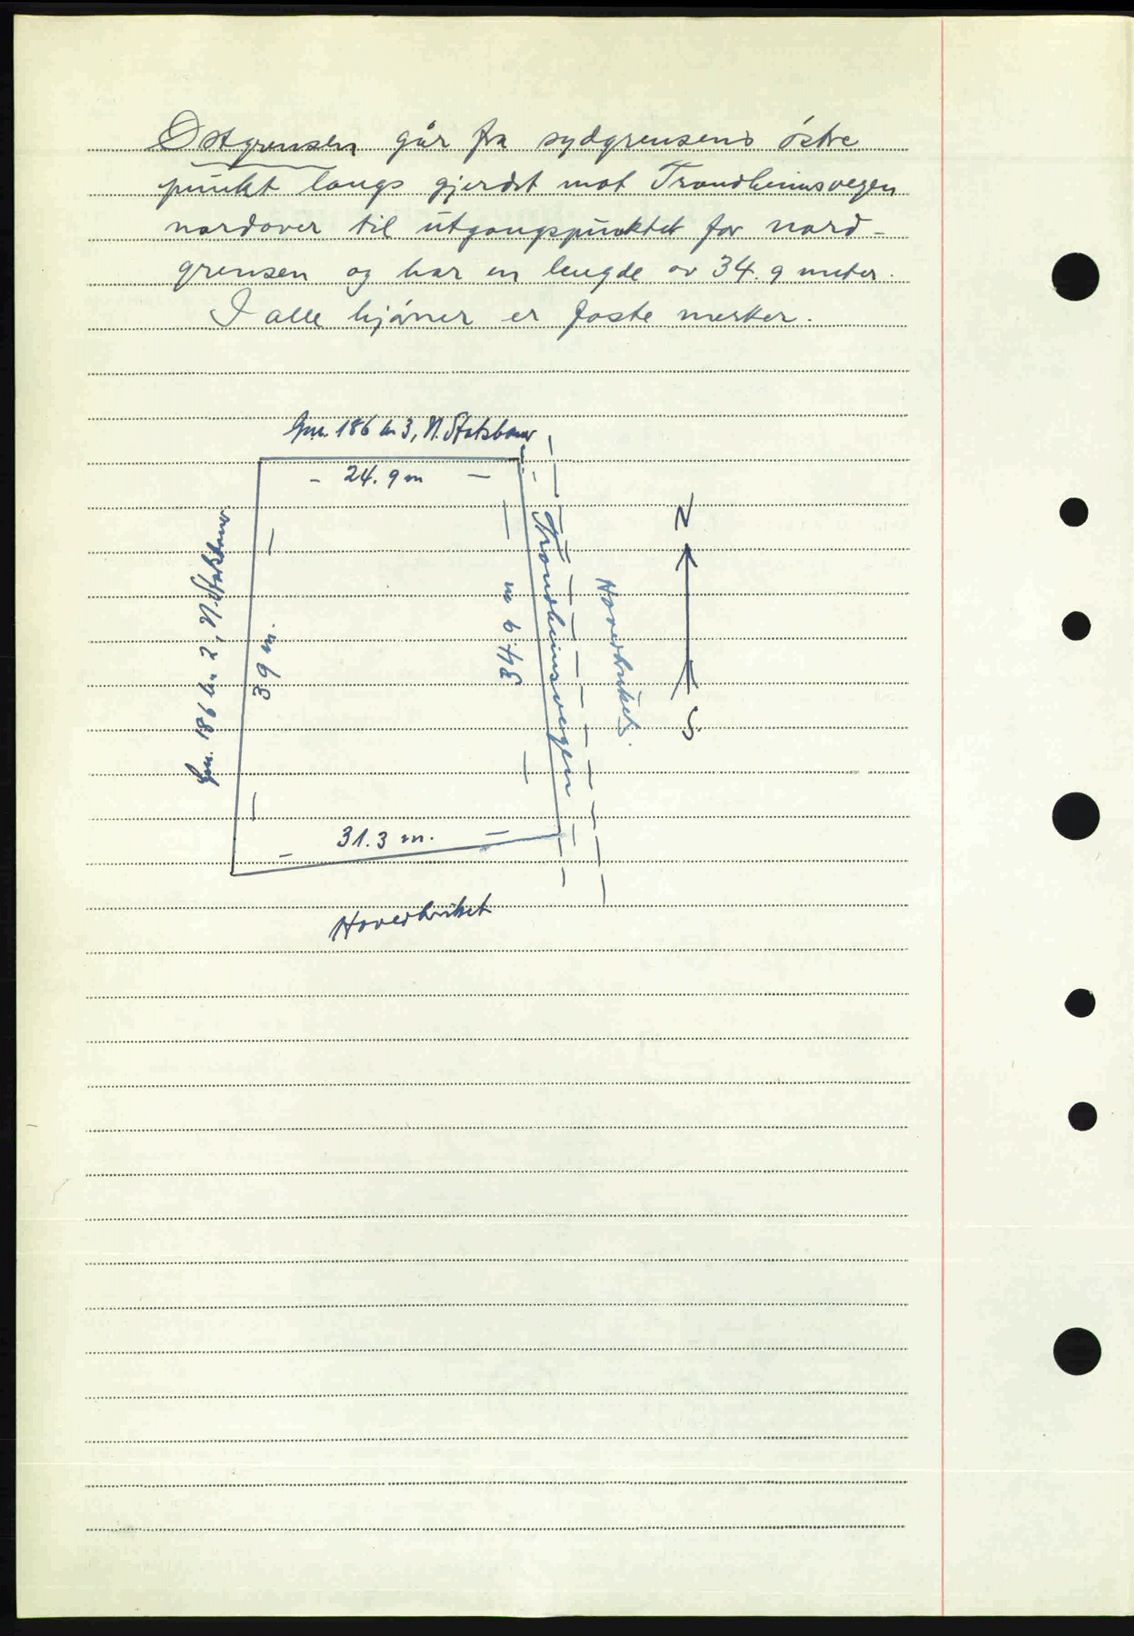 Østgrensen går fra sydgrensens östre
punkt langs gjerdet mot Trondheimsvegen
nordover til utgangspunktet for nord-
grensen og har en lengde av 34.9 meter.
I alle hjörner er faste merker.
Gnr. 186 bn 3, N. Statsbane
- 24.9 m -
Gnr. 186 bn 2, N. Statsbane
39 m.
34.9 m
Trondheimsvegen
Hovedbruket.
N
S.
31.3 m.
Hovedbruket